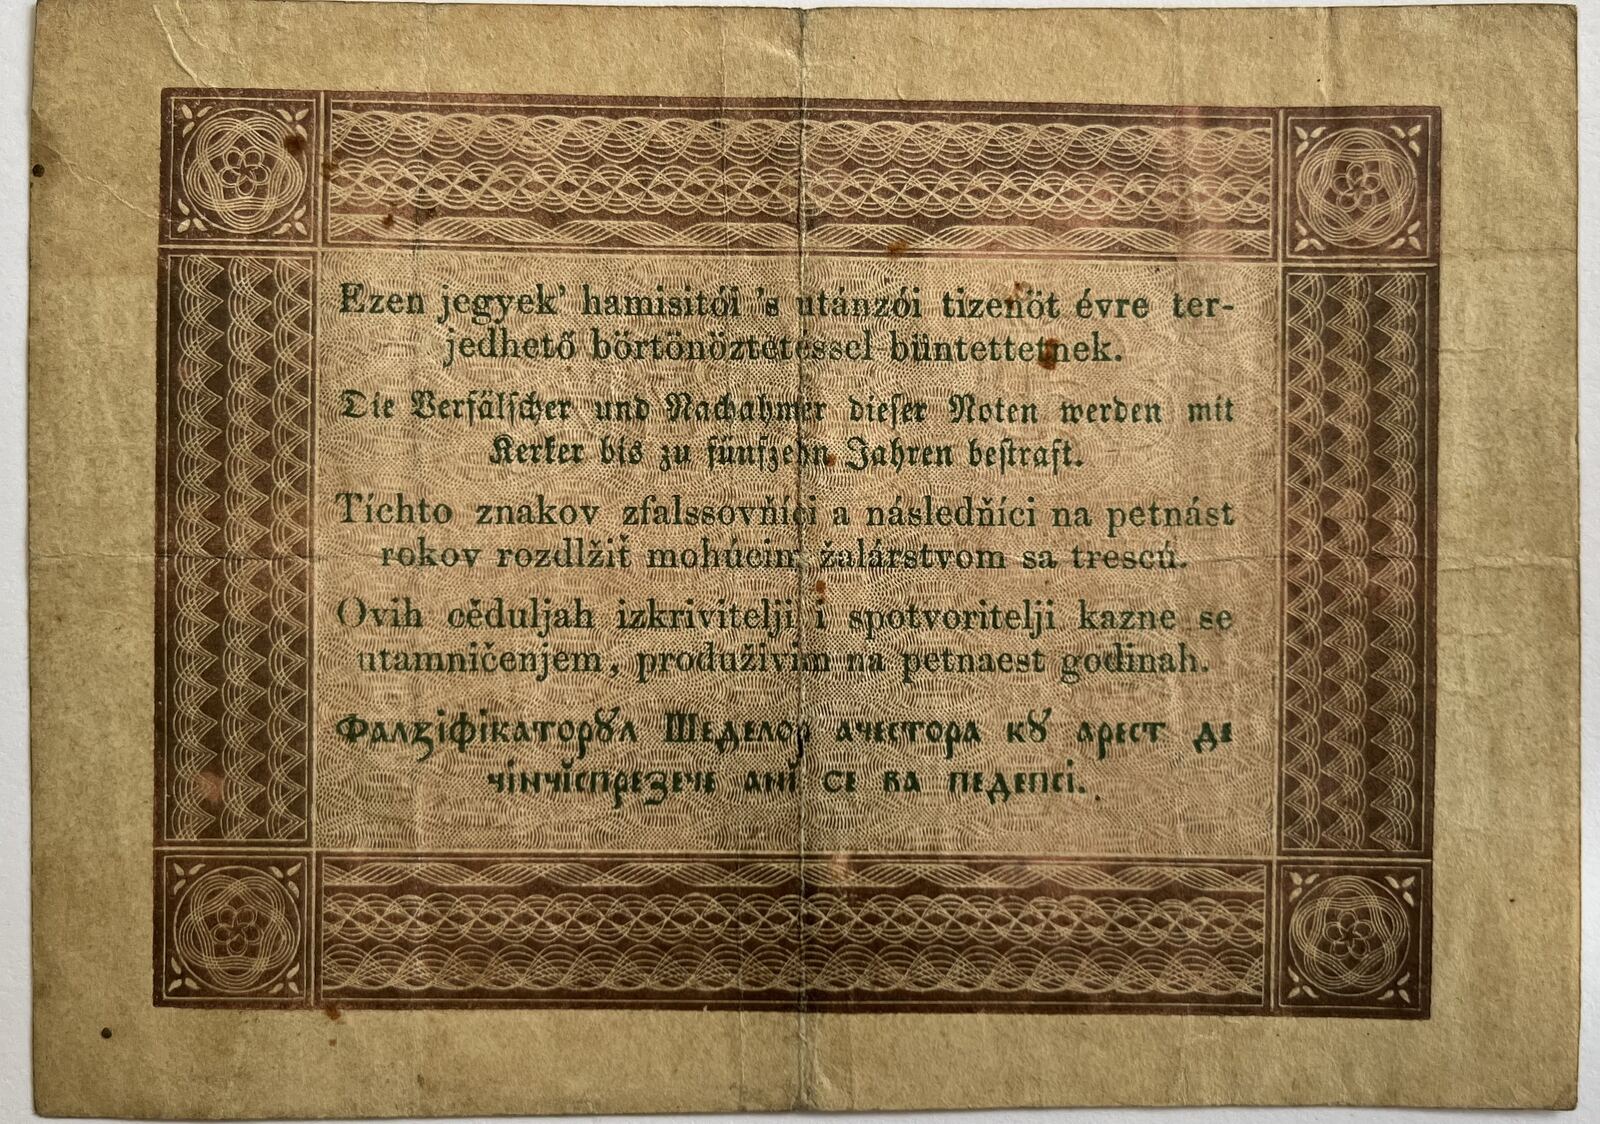 Ezen jegyek’ hamisitói ’s utánzói tizenöt évre ter-
jedhető börtönöztetéssel büntettetnek.
Die Verfälſcher und Nachahmer dieſer Noten werden mit
Kerker bis zu fünfzehn Jahren beſtraft.
Tíchto znakov zfalssovňíci a následňíci na petnást
rokov rozdlžiť mohúcim žalárstvom sa trescú.
Ovih cěduljah izkrivitelji i spotvoritelji kazne se
utamničenjem, produživim na petnaest godinah.
Фалзіфікаторꙋл Шеделор ачестора кꙋ арест де
чінчіспрезече ані се ва педепсі.